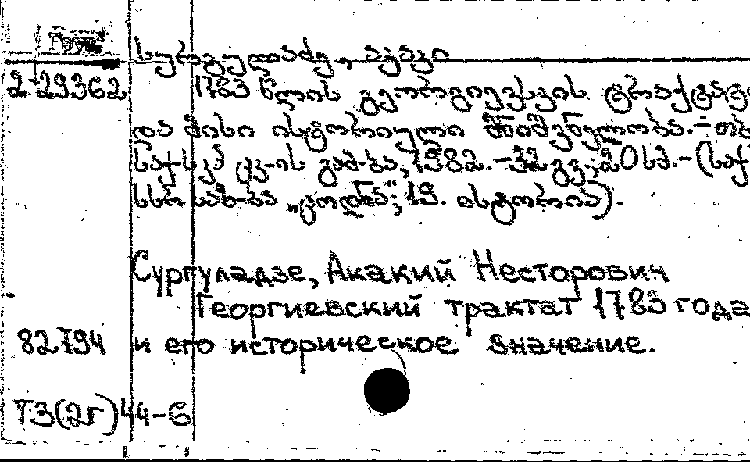 Груз.
სურგულაძე, აკაკი
2-29362 1783 წლის გეორგიევსკის ტრაქტატი
და მისი ისტორიული მნიშვნელობა.-თბ.
საქ. სკპ ცკ-ის გამ-ბა, 1982.-32 გვ; 20 სმ.-(საქ
სსრ საზ-ბა „ცოდნა"; 19. ისტორია).
Сургуладзе, Акакий Несторович
Георгиевский трактат 1783 года
82.794 и его историческое значение.
ТЗ(2Г)44-6